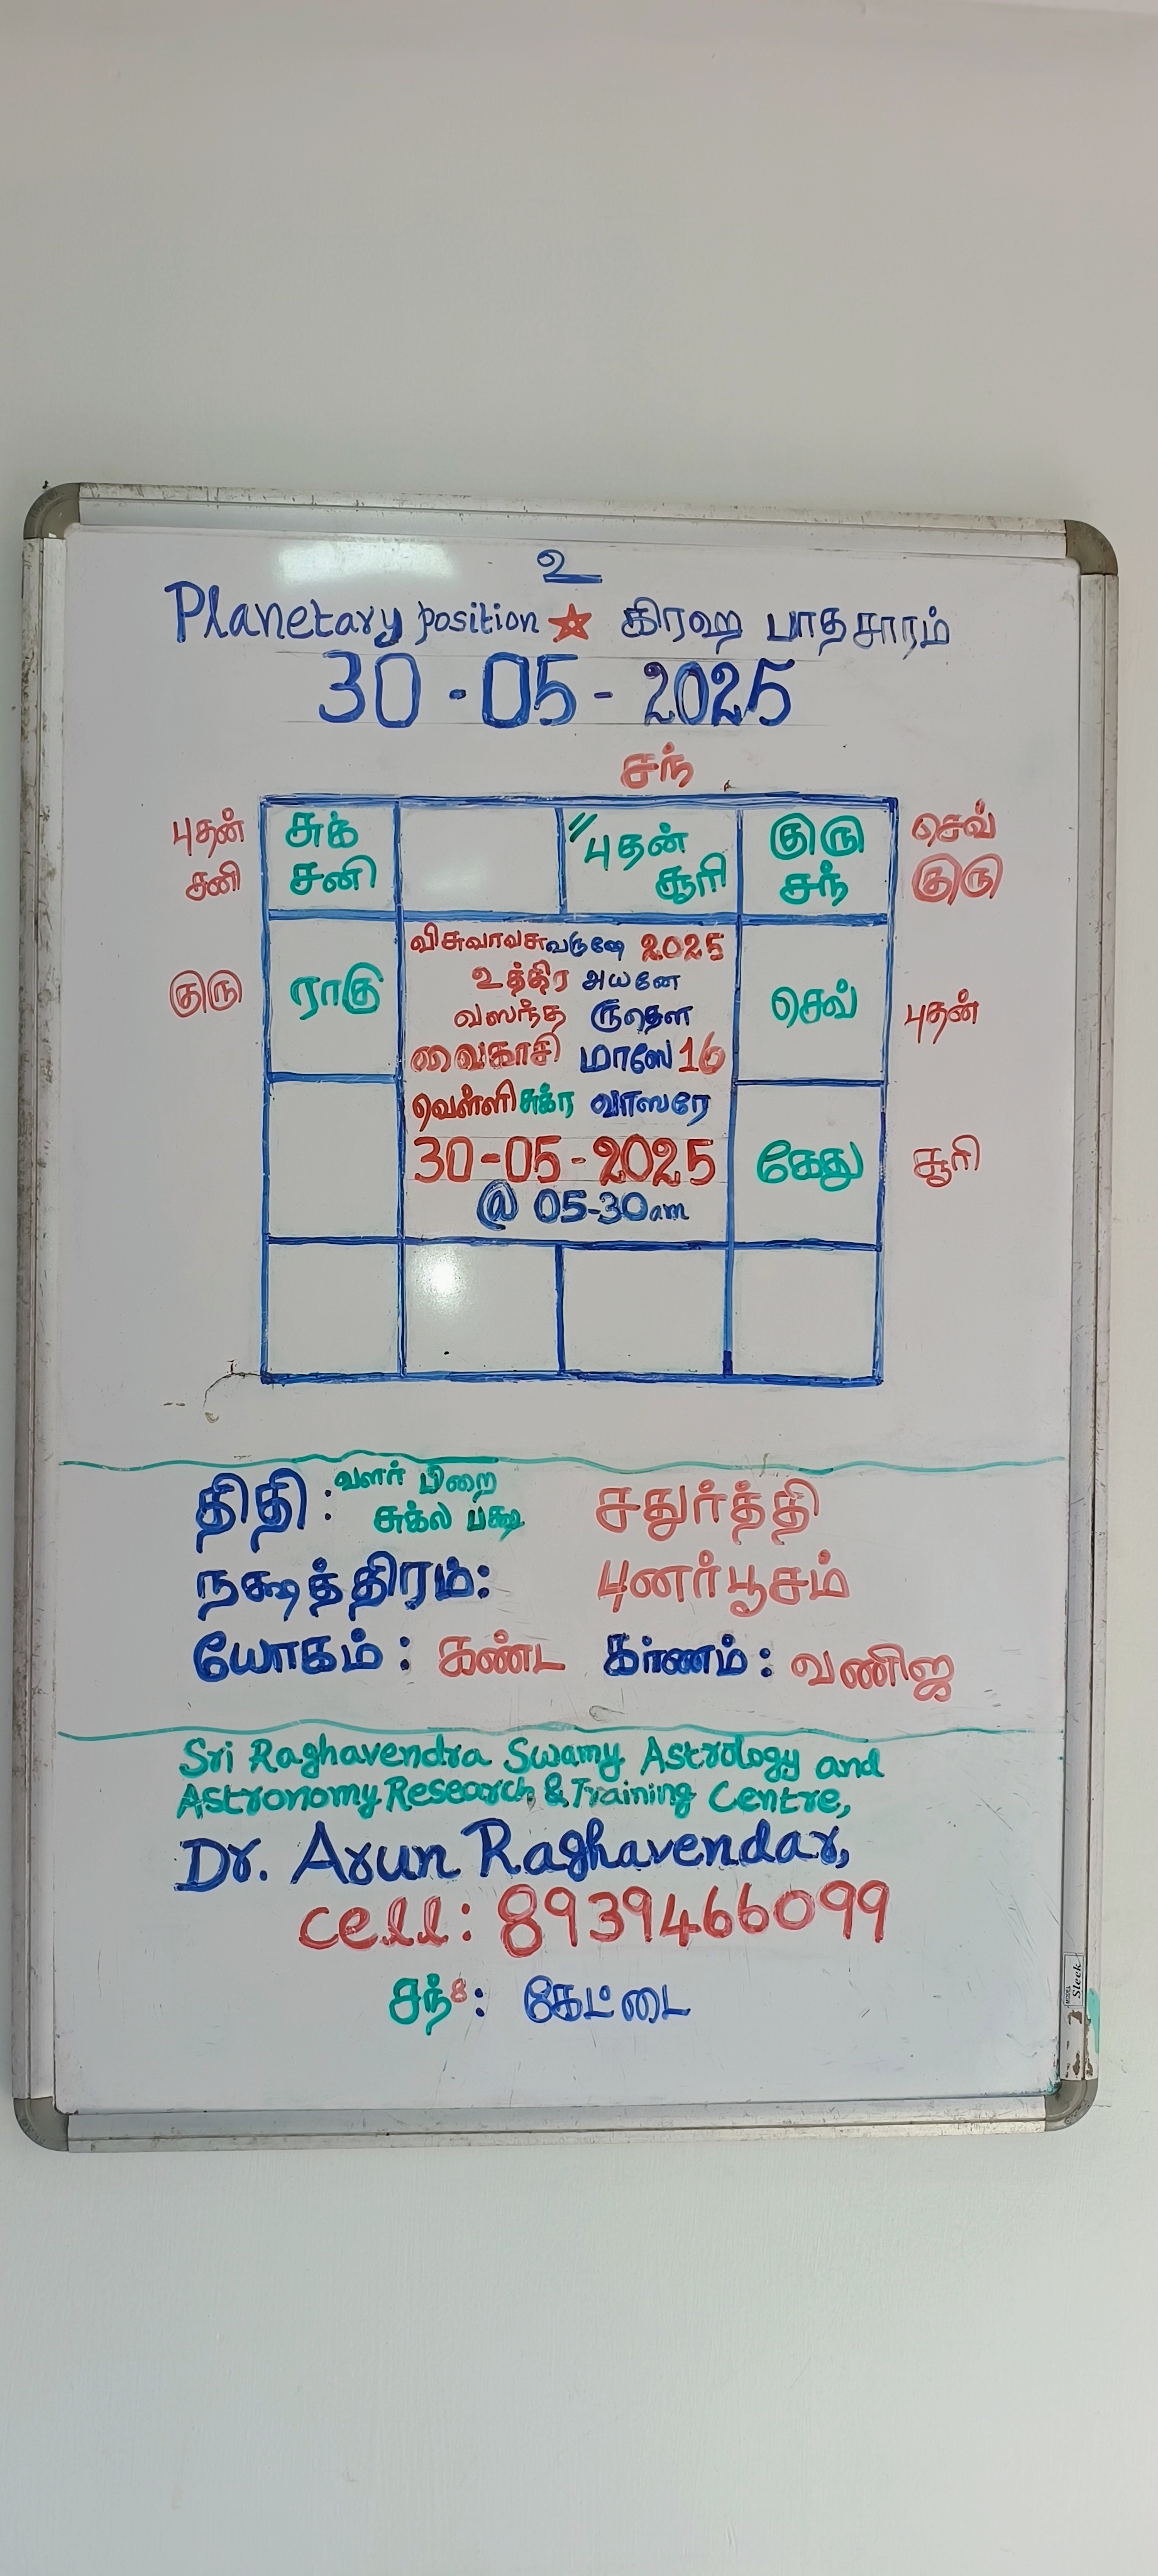 உ
Planetary position ☆ கிரஹ பாதசாரம்
30-05-2025
சந்
புதன்
சனி
சுக்
சனி
புதன்
சூரி
குரு
சந்
செவ்
குரு
குரு
ராகு
விசுவாவசுவருஷே 2025
உத்திர அயனே
வஸந்த ருதௌ
வைகாசி மாஸே 16
வெள்ளி சுக்ர வாஸரே
30-05-2025
@ 05-30am
செவ்
புதன்
கேது
சூரி
திதி: வளர் பிறை
சுக்ல பக்ஷ சதுர்த்தி
நக்ஷத்திரம்: புனர்பூசம்
யோகம்: கண்ட கர்ணம்: வணிஜ
Sri Raghavendra Swamy Astrology and
Astronomy Research & Training Centre,
Dr. Arun Raghavendar,
cell: 8939466099
சந்8: கேட்டை
Sleek